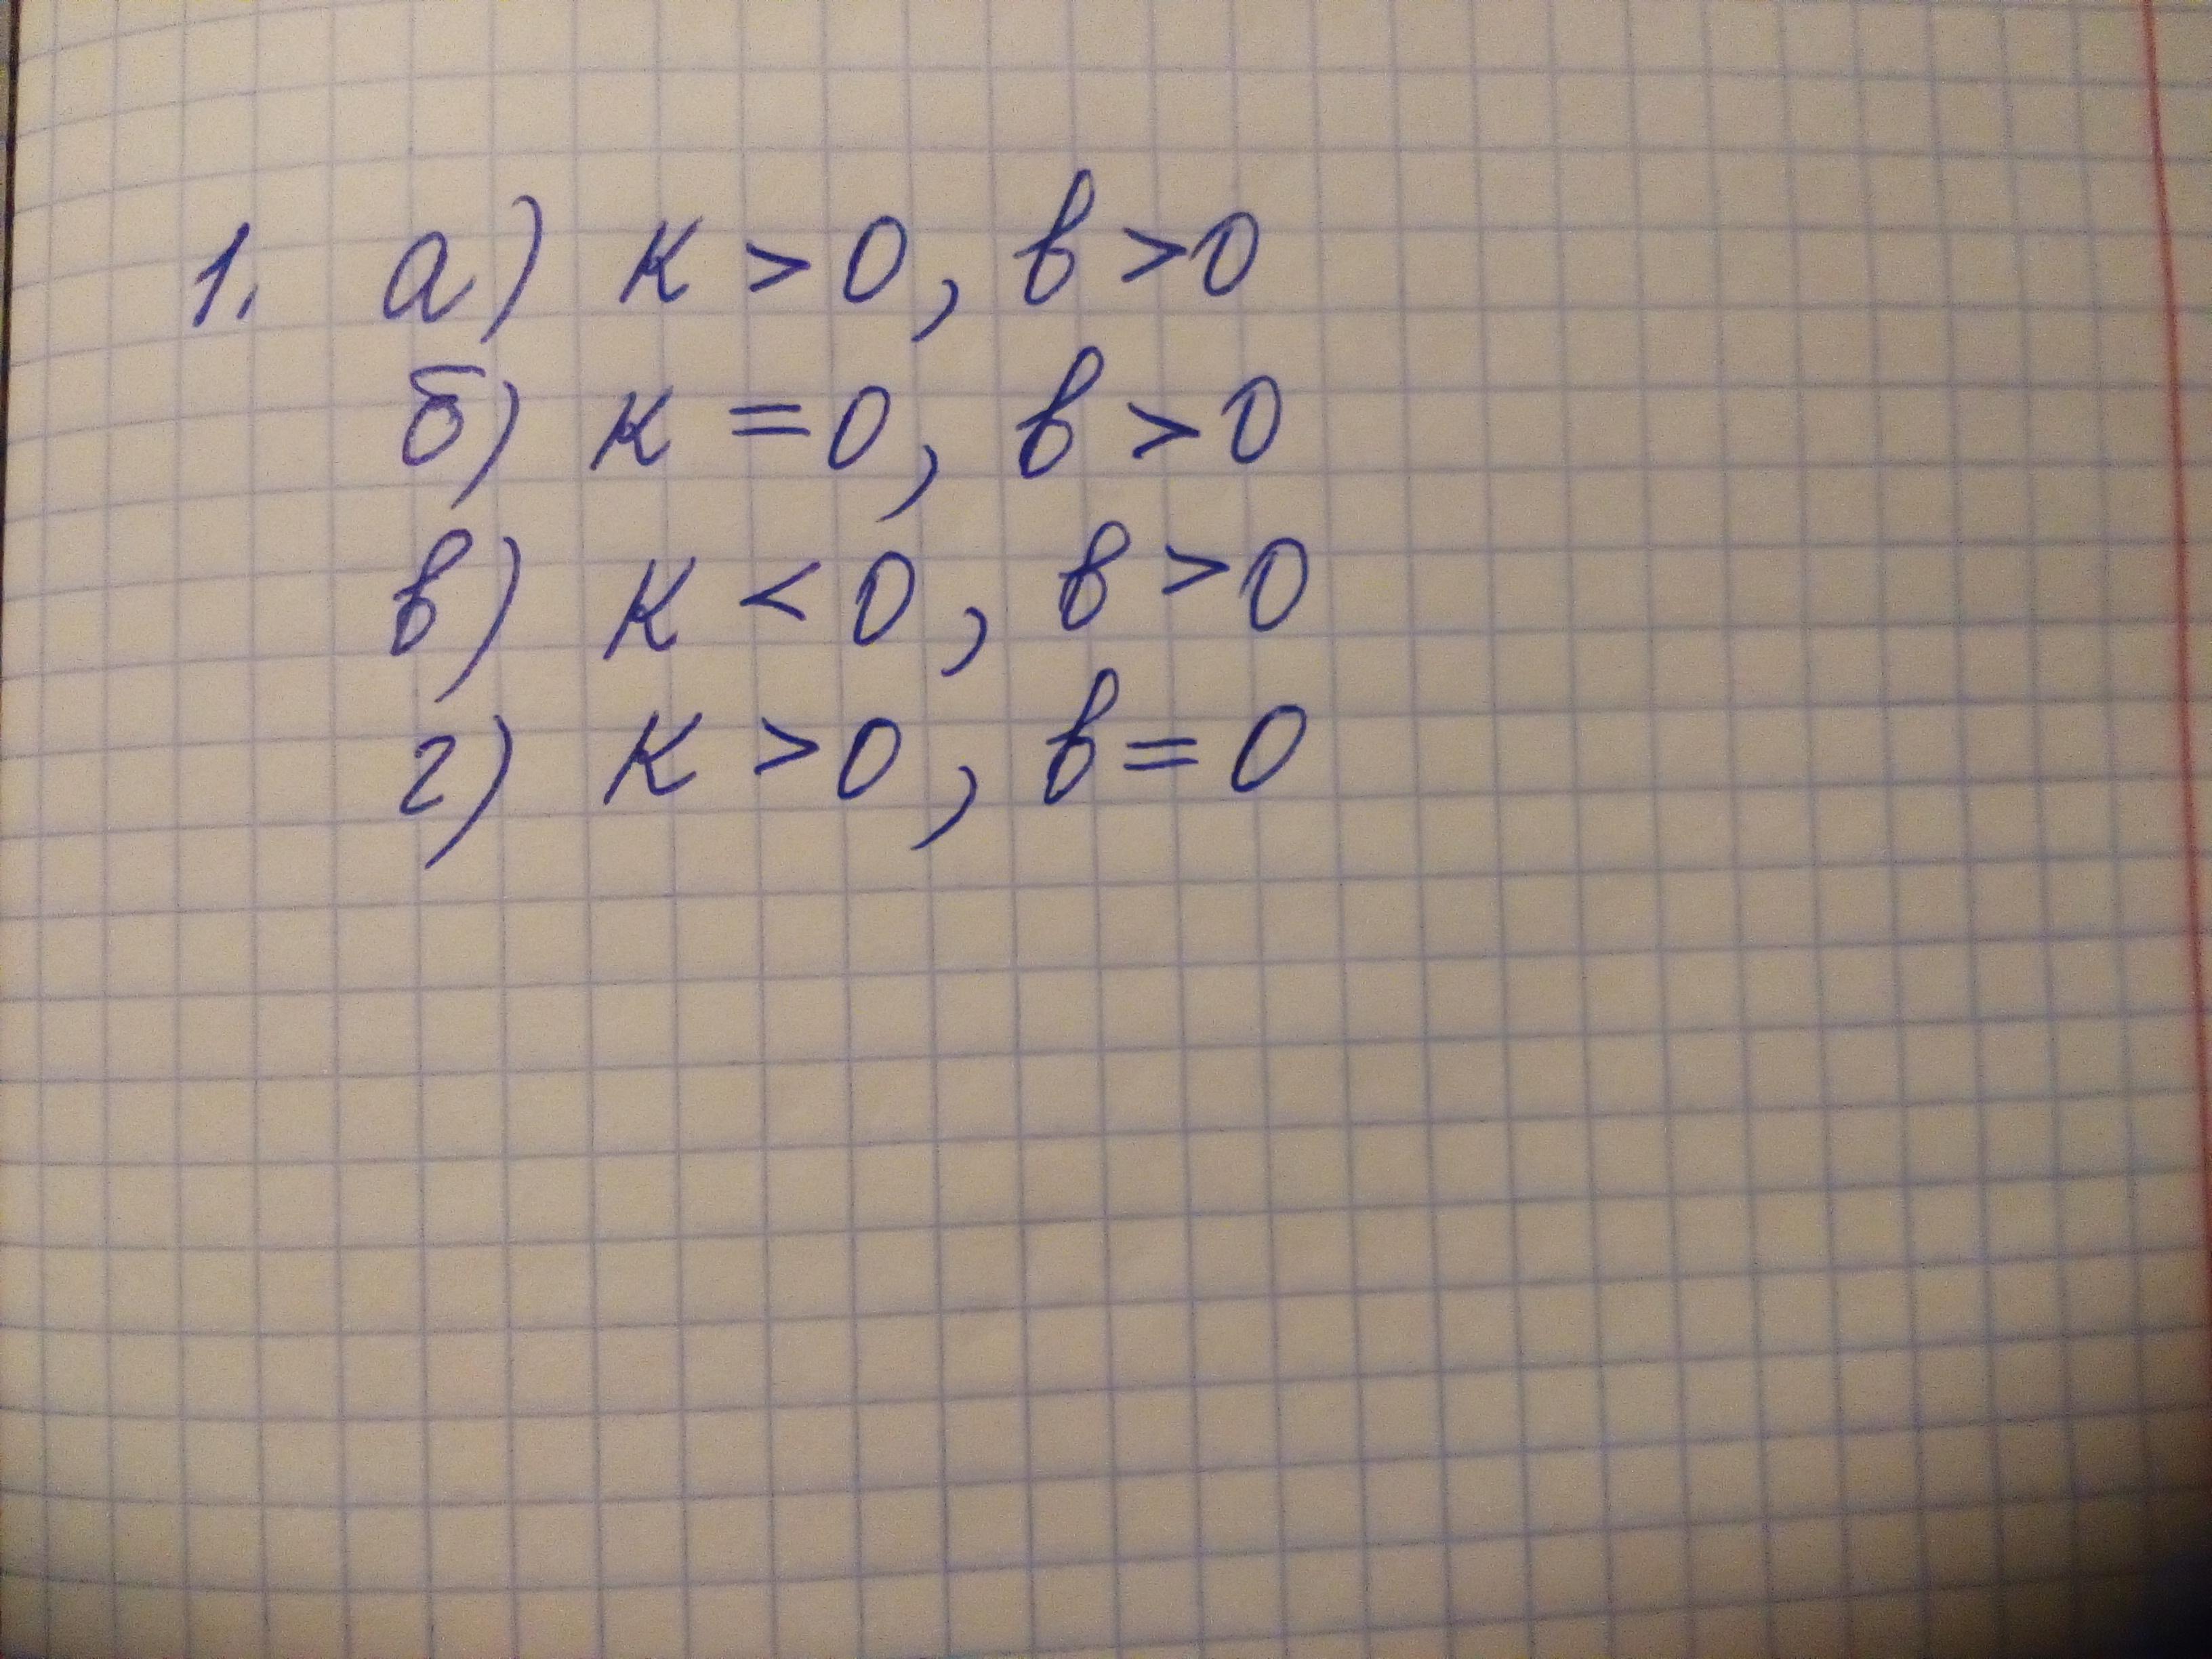 1. а) к > 0, в > 0
б) к = 0, в > 0
в) к < 0, в > 0
г) к > 0, в = 0